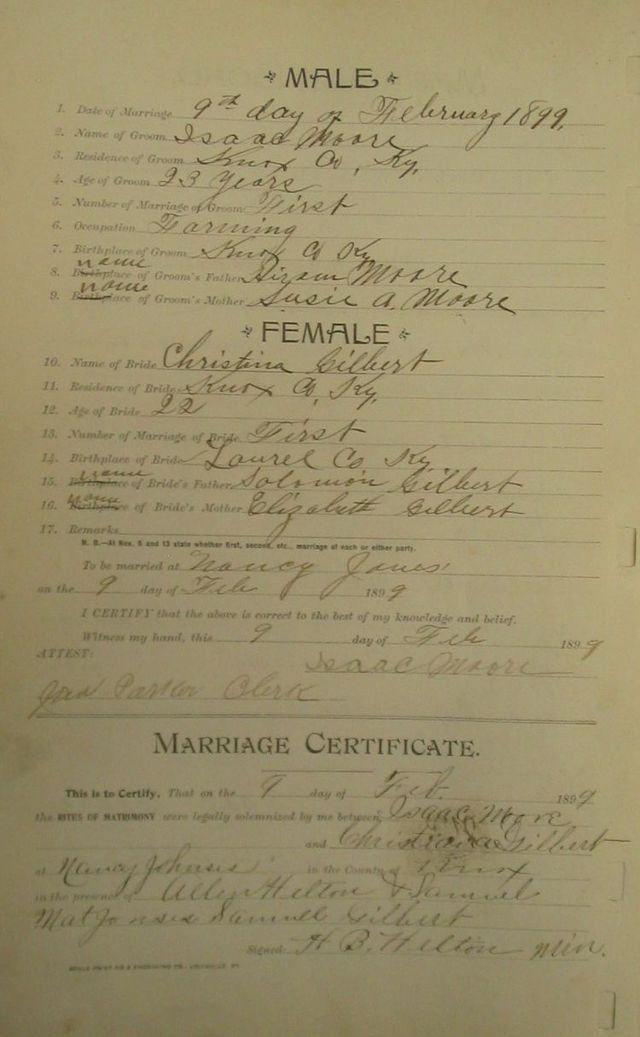 MALE
1. Date of Marriage 9th day of February 1899.
2. Name of Groom Isaac Moore
3. Residence of Groom Knox Co, Ky.
4. Age of Groom 23 years
5. Number of Marriage of Groom First
6. Occupation Farming
7. Birthplace of Groom Knox Co Ky
name
8. Birthplace of Groom's Father Hiram Moore
name
9. Birthplace of Groom's Mother Susie A. Moore
FEMALE
10. Name of Bride Christina Gilbert
11. Residence of Bride Knox Co, Ky.
12. Age of Bride 22
13. Number of Marriage of Bride First
14. Birthplace of Bride Laurel Co Ky
name
15. Birthplace of Bride's Father Solomon Gilbert
name
16. Birthplace of Bride's Mother Elizabeth Gilbert
17. Remarks
N. B.—At Nos. 5 and 13 state whether first, second, etc., marriage of each or either party.
To be married at Nancy Jones'
on the 9 day of Feb 1899
I CERTIFY that the above is correct to the best of my knowledge and belief.
Witness my hand, this 9 day of Feb 1899
ATTEST: Isaac Moore
Parker Clerk
MARRIAGE CERTIFICATE.
This is to Certify, That on the 9 day of Feb. 1899
the RITES OF MATRIMONY were legally solemnized by me between Isaac Moore
and Gilbert
at Nancy in the County of Knox
in the presence of Allen Helton & Samuel
Mat Samuel Gilbert
Signed: H B. Helton min.